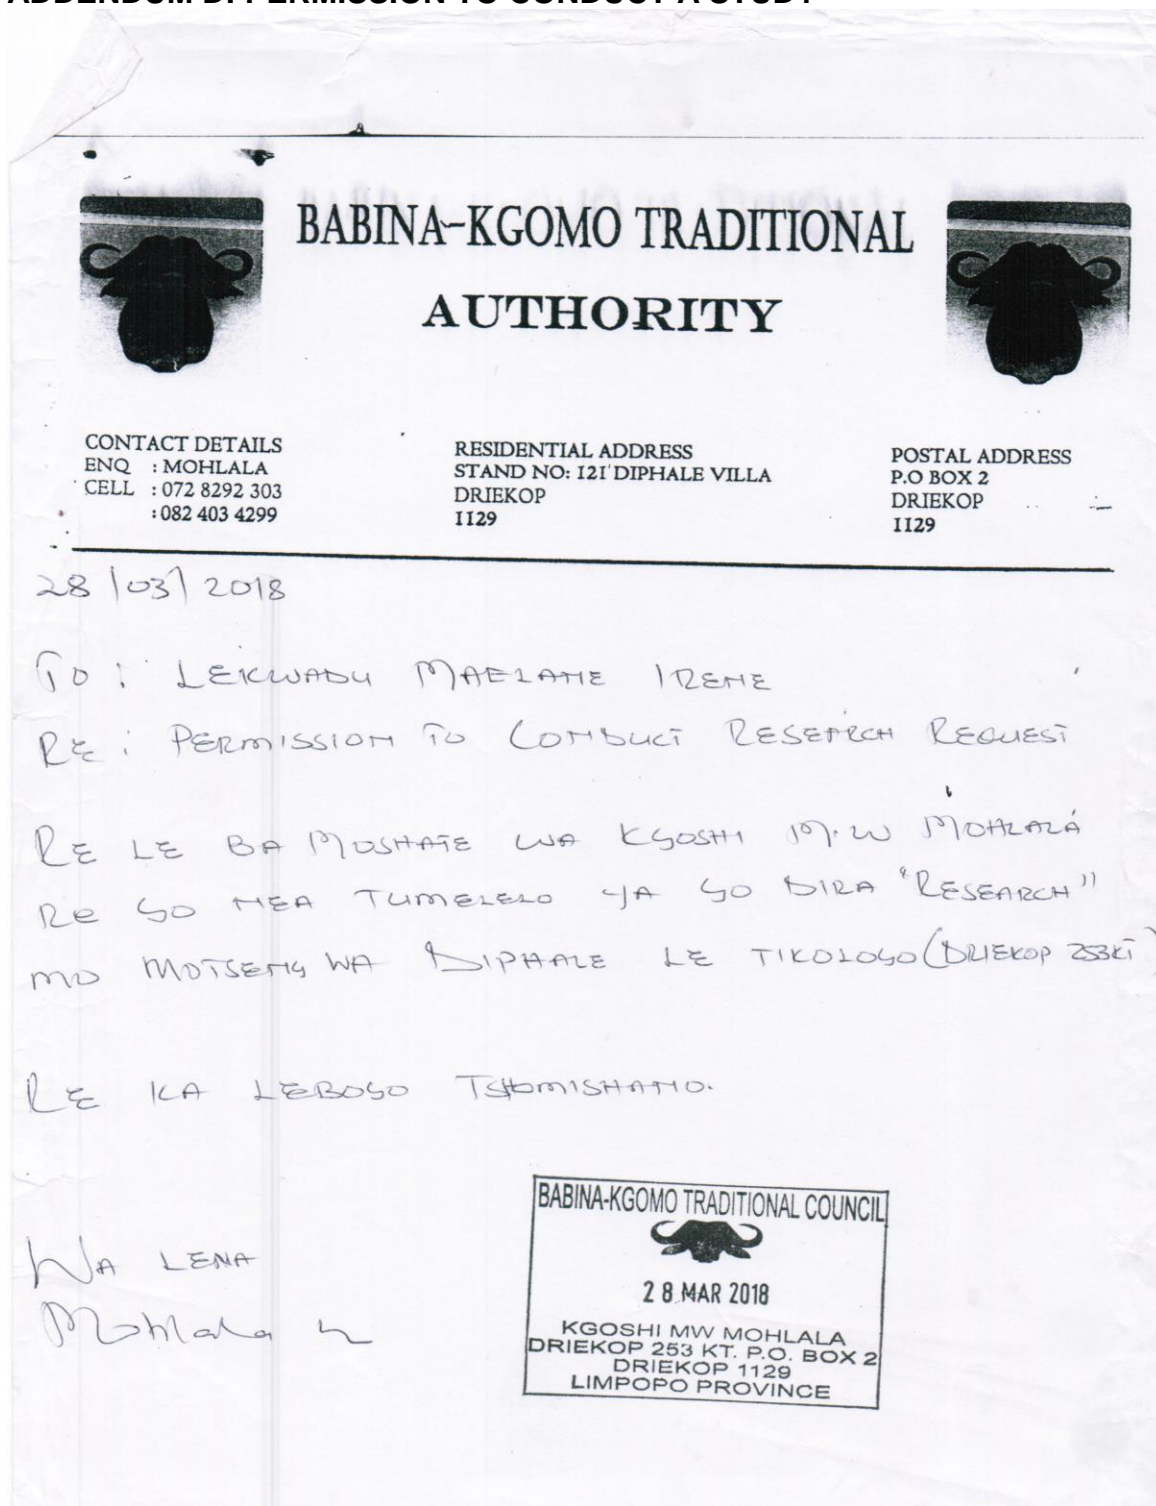 ADDENDUM D: PERMISSION TO CONDUCT A STUDY
BABINA-KGOMO TRADITIONAL
AUTHORITY
CONTACT DETAILS
ENQ : MOHLALA
CELL : 072 8292 303
: 082 403 4299
RESIDENTIAL ADDRESS
STAND NO: 121 DIPHALE VILLA
DRIEKOP
1129
POSTAL ADDRESS
P.O BOX 2
DRIEKOP
1129
28/03/2018
TO: LEKWADU MAELANE IRENE
RE: PERMISSION TO CONDUCT RESEARCH REQUEST
RE LE BA MOSHATE WA KGOSHI M.W MOHLALA
RE GO NEA TUMELELO YA GO DIRA "RESEARCH"
MO MOTSENG WA DIPHALE LE TIKOLOGO (DRIEKOP 253KT)
RE KA LEBOGO TSHOMISHANO.
WA LENA
Mohlala
BABINA-KGOMO TRADITIONAL COUNCIL
28 MAR 2018
KGOSHI MW MOHLALA
DRIEKOP 253 KT. P.O. BOX 2
DRIEKOP 1129
LIMPOPO PROVINCE